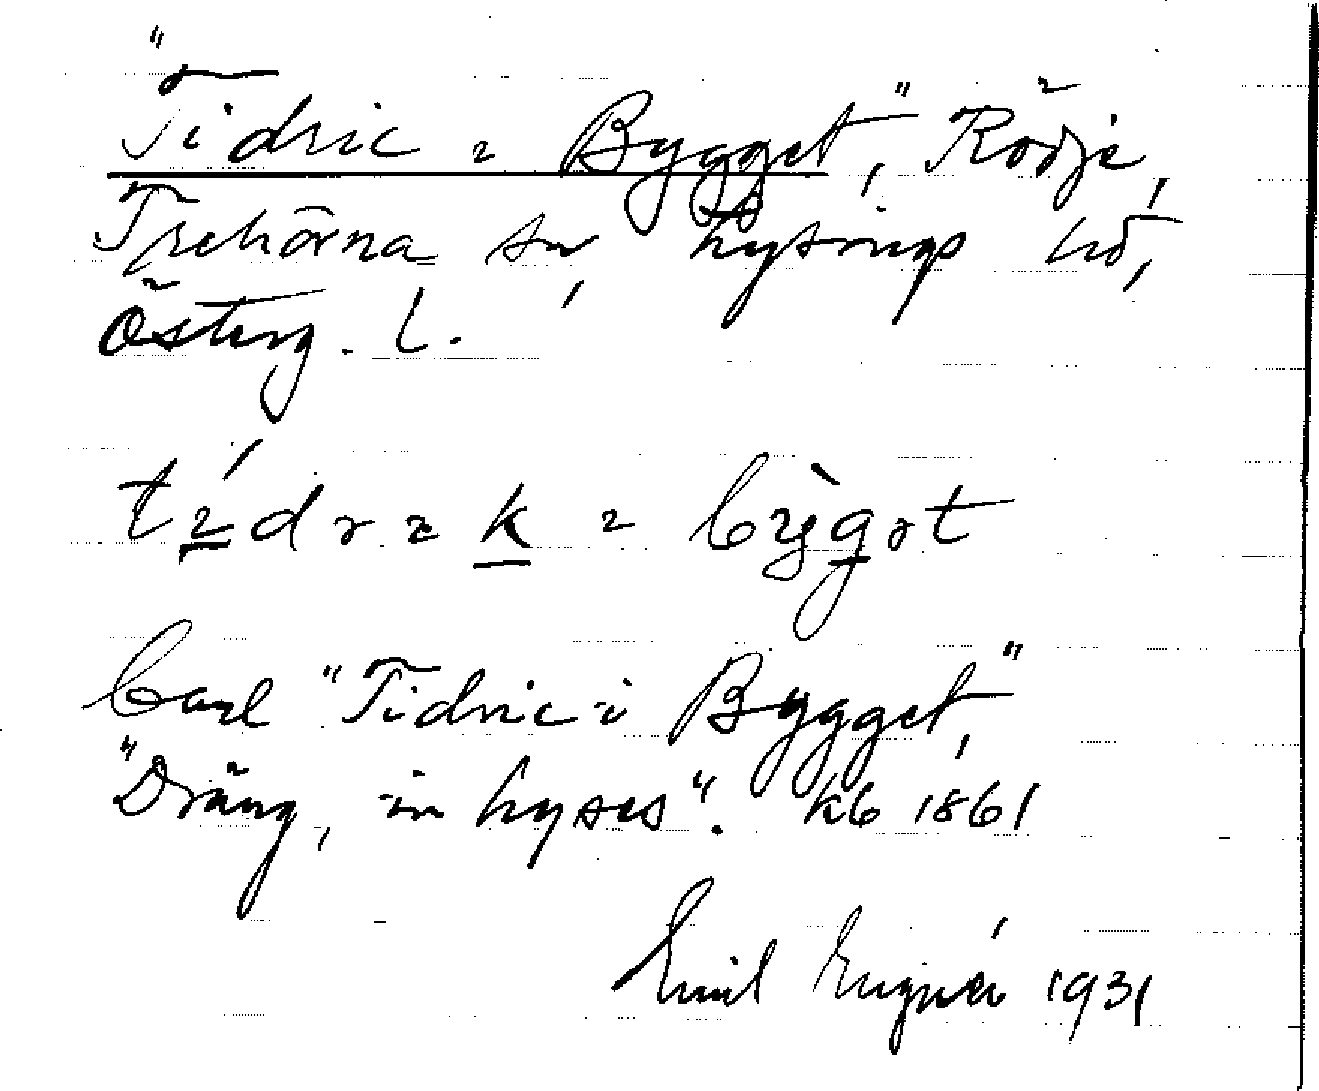 "Tidric i Bygget", Rödje,
Trehörna sn, Lysings hd,
Österg. l.
tídrik i bỳgət
Carl "Tidric i Bygget",
"Dräng, in hyses". kb 1861
Emil Engnér 1931